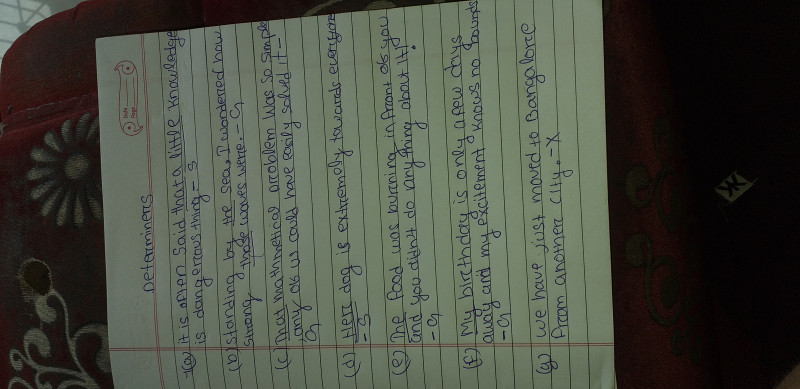 Determiners
(a) It is often said that a little knowledge
is dangerous thing - S
(b) Standing by the sea, I wondered how
strong those waves were. - G
(c) That mathmetical problem was so simple
any of us could have easily solved it -
G
(d) Her dog is extremely towards everyone
- S
(e) The food was burning in front of you
and you didn't do anything about it!
- G
(f) My birthday is only a few days
away and my excitement knows no bounds
- G
(g) we have just moved to Bangalore
from another city. - X